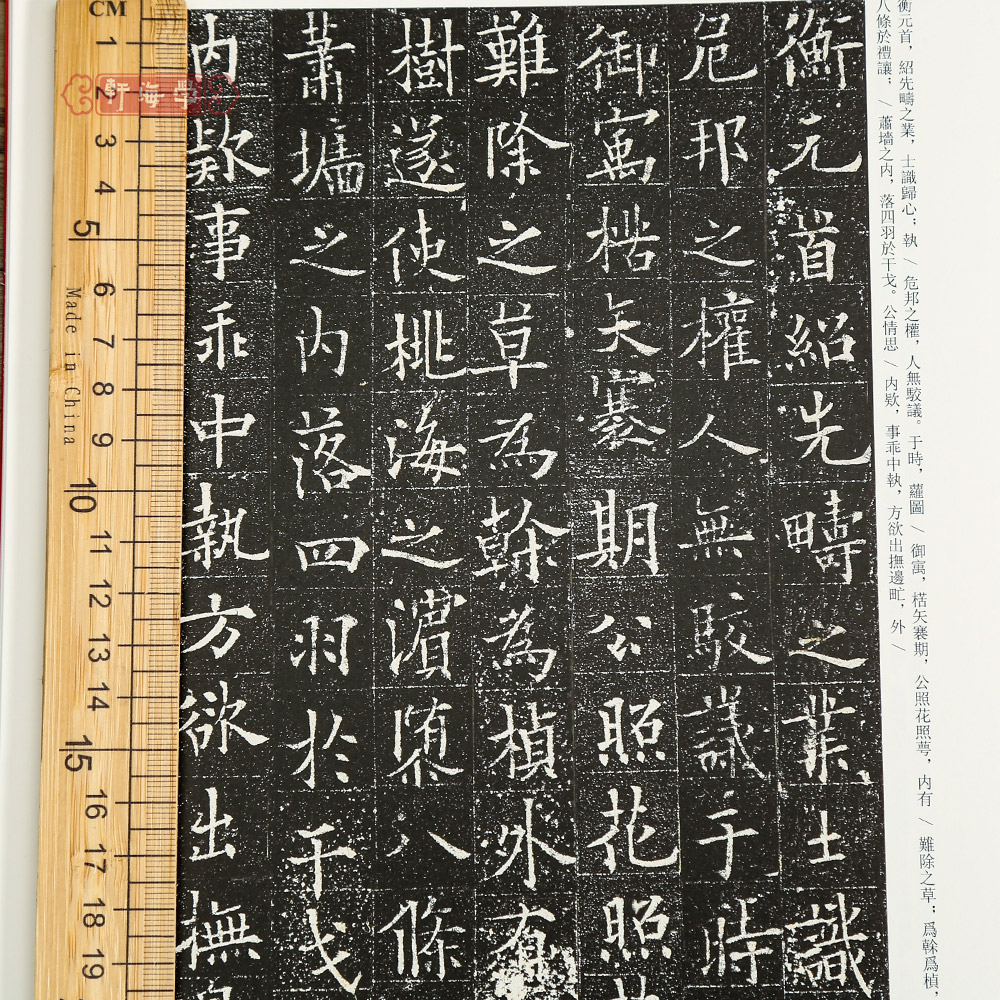 衡元首紹先疇之業士識
危邦之權人無駮議于時
御寓楛矢褰期公照花照
難除之草為榦為楨外有
樹遂使桃海之濵陏八條
蕭墻之内落四羽於干戈
内欵事乖中執方欲出撫
衡元首,紹先疇之業,士識歸心;執 \ 危邦之權,人無駮議。于時,蘿圖 \ 御寓,楛矢褰期,公照花照萼,内有 \ 難除之草;爲榦爲楨,
八條於禮讓; \ 蕭墻之内,落四羽於干戈。公情思 \ 内欵,事乖中執,方欲出撫邊甿,外 \
CM
1
2
3
4
5
6
7
8
9
10
11
12
13
14
15
16
17
18
19
Made in China
軒海學